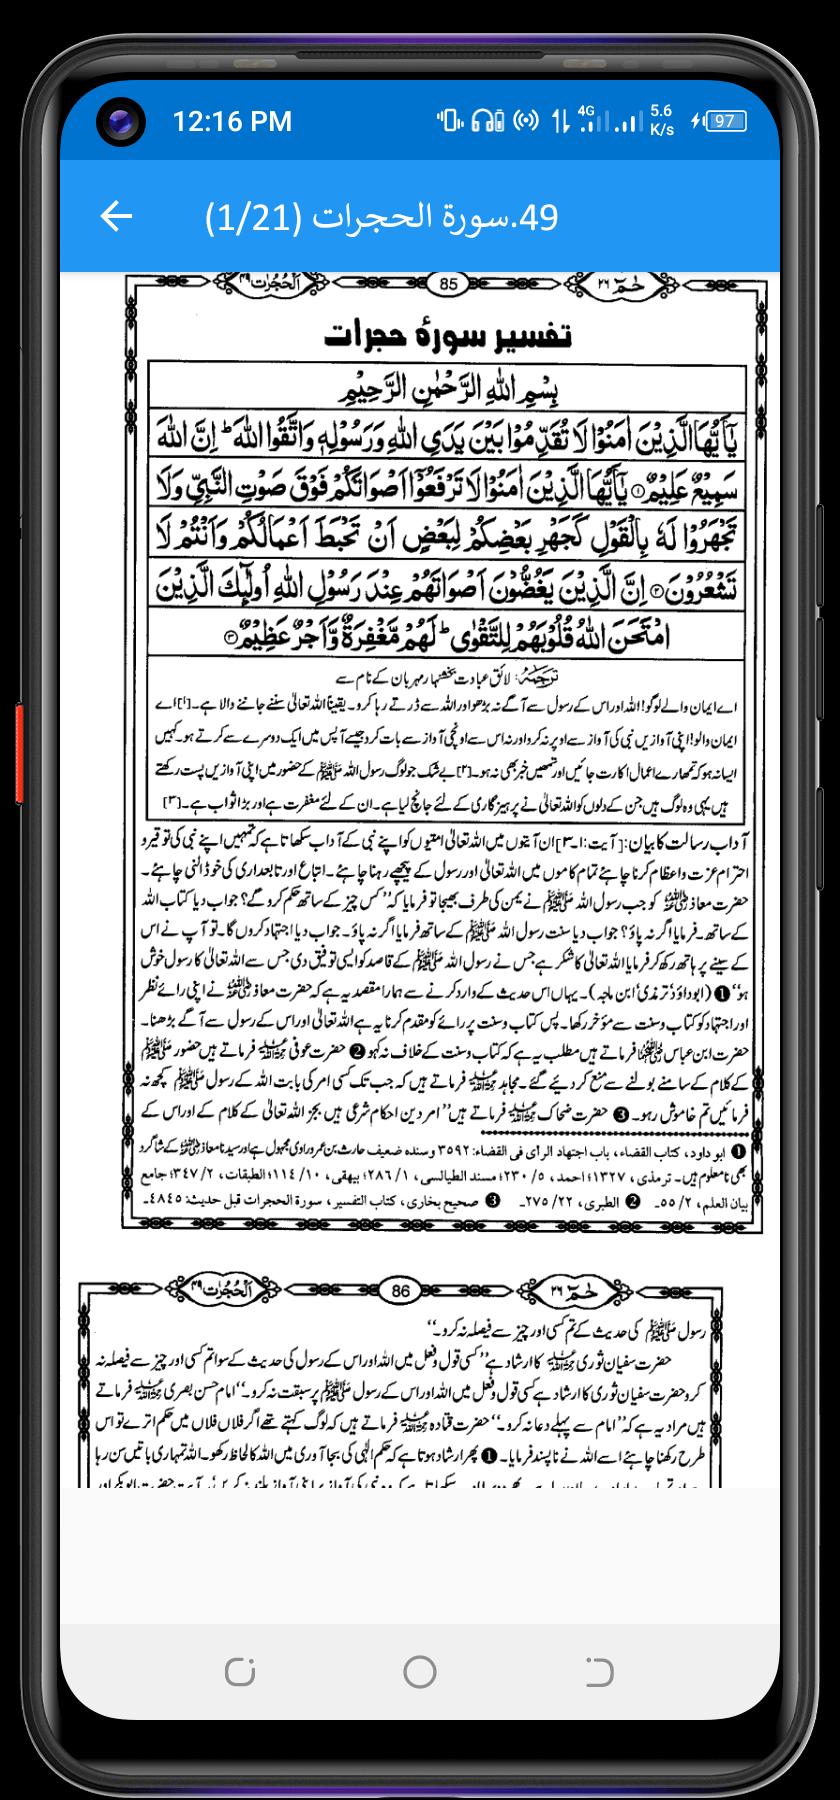 12:16 PM
4G
5.6
K/s
97
49.سورة الحجرات (1/21)
حٰمٓ ۲۶
85
اَلْحُجُرٰت ۴۹
تفسیر سورۂ حجرات
بِسْمِ اللّٰهِ الرَّحْمٰنِ الرَّحِيْمِ
يٰٓاَيُّهَا الَّذِيْنَ اٰمَنُوْا لَا تُقَدِّمُوْا بَيْنَ يَدَيِ اللّٰهِ وَرَسُوْلِهٖ وَاتَّقُوا اللّٰهَ ؕ اِنَّ اللّٰهَ
سَمِيْعٌ عَلِيْمٌ ۝۱ يٰٓاَيُّهَا الَّذِيْنَ اٰمَنُوْا لَا تَرْفَعُوْٓا اَصْوَاتَكُمْ فَوْقَ صَوْتِ النَّبِيِّ وَلَا
تَجْهَرُوْا لَهٗ بِالْقَوْلِ كَجَهْرِ بَعْضِكُمْ لِبَعْضٍ اَنْ تَحْبَطَ اَعْمَالُكُمْ وَاَنْتُمْ لَا
تَشْعُرُوْنَ ۝۲ اِنَّ الَّذِيْنَ يَغُضُّوْنَ اَصْوَاتَهُمْ عِنْدَ رَسُوْلِ اللّٰهِ اُولٰٓئِكَ الَّذِيْنَ
امْتَحَنَ اللّٰهُ قُلُوْبَهُمْ لِلتَّقْوٰى ؕ لَهُمْ مَّغْفِرَةٌ وَّاَجْرٌ عَظِيْمٌ ۝۳
ترجمہ: لائق عبادت بخشنہار مہربان کے نام سے
اے ایمان والے لوگو! اللہ اور اس کے رسول سے آگے نہ بڑھو اور اللہ سے ڈرتے رہا کرو۔ یقیناً اللہ تعالیٰ سننے جاننے والا ہے۔[۱] اے
ایمان والو! اپنی آوازیں نبی کی آواز سے اوپر نہ کرو اور نہ اس سے اونچی آواز سے بات کرو جیسے آپس میں ایک دوسرے سے کرتے ہو۔ کہیں
ایسا نہ ہو کہ تمہارے اعمال اکارت جائیں اور تمھیں خبر بھی نہ ہو۔[۲] بے شک جو لوگ رسول اللہ ﷺ کے حضور میں اپنی آوازیں پست رکھتے
ہیں یہی وہ لوگ ہیں جن کے دلوں کو اللہ تعالیٰ نے پرہیزگاری کے لئے جانچ لیا ہے۔ ان کے لئے مغفرت ہے اور بڑا ثواب ہے۔[۳]
آداب رسالت کا بیان: [آیت:۱۔۳] ان آیتوں میں اللہ تعالیٰ امتیوں کو اپنے نبی کے آداب سکھاتا ہے کہ تمہیں اپنے نبی کی توقیر و
احترام عزت و اعظام کرنا چاہئے تمام کاموں میں اللہ تعالیٰ اور رسول کے پیچھے رہنا چاہئے۔ اتباع اور تابعداری کی خو ڈالنی چاہئے۔
حضرت معاذ رضی اللہ عنہ کو جب رسول اللہ ﷺ نے یمن کی طرف بھیجا تو فرمایا کہ ”کس چیز کے ساتھ حکم کرو گے؟ جواب دیا کتاب اللہ
کے ساتھ۔ فرمایا اگر نہ پاؤ؟ جواب دیا سنت رسول اللہ ﷺ کے ساتھ فرمایا اگر نہ پاؤ۔ جواب دیا اجتہاد کروں گا۔ تو آپ نے اس
کے سینے پر ہاتھ رکھ کر فرمایا اللہ تعالیٰ کا شکر ہے جس نے رسول اللہ ﷺ کے قاصد کو ایسی توفیق دی جس سے اللہ تعالیٰ کا رسول خوش
ہو“ ❶ (ابوداؤد ترمذی ابن ماجہ)۔ یہاں اس حدیث کے وارد کرنے سے ہمارا مقصد یہ ہے کہ حضرت معاذ رضی اللہ عنہ نے اپنی رائے نظر
اور اجتہاد کو کتاب و سنت سے مؤخر رکھا۔ پس کتاب و سنت پر رائے کو مقدم کرنا یہ ہے اللہ تعالیٰ اور اس کے رسول سے آگے بڑھنا۔
حضرت ابن عباس رضی اللہ عنہما فرماتے ہیں مطلب یہ ہے کہ کتاب و سنت کے خلاف نہ کہو ❷ حضرت عوفی رحمہ اللہ فرماتے ہیں حضور ﷺ
کے کلام کے سامنے بولنے سے منع کر دیئے گئے۔ مجاہد رحمہ اللہ فرماتے ہیں کہ جب تک کسی امر کی بابت اللہ کے رسول ﷺ کچھ نہ
فرمائیں تم خاموش رہو۔ ❸ حضرت ضحاک رحمہ اللہ فرماتے ہیں ”امر دین احکام شرعی میں بجز اللہ تعالیٰ کے کلام کے اور اس کے
❶ ابو داود، کتاب القضاء، باب اجتهاد الرأی فی القضاء: ۳۵۹۲ وسنده ضعیف حارث بن عمرو راوی مجہول ہے اور سیدنا معاذ رضی اللہ عنہ کے شاگرد
بھی نامعلوم ہیں۔ ترمذی، ۱۳۲۷؛ احمد، ۵/ ۲۳۰؛ مسند الطیالسی، ۱/ ۲۸٦؛ بیهقی، ۱۰/ ۱۱٤؛ الطبقات، ۲/ ۳٤۷؛ جامع
بیان العلم، ۲/ ۵۵۔ ❷ الطبری، ۲۲/ ۲۷۵۔ ❸ صحیح بخاری، کتاب التفسیر، سورة الحجرات قبل حدیث: ٤٨٤٥۔
حٰمٓ ۲۶
86
اَلْحُجُرٰت ۴۹
رسول ﷺ کی حدیث کے تم کسی اور چیز سے فیصلہ نہ کرو۔“
حضرت سفیان ثوری رحمہ اللہ کا ارشاد ہے ”کسی قول و فعل میں اللہ اور اس کے رسول کی حدیث کے سوا تم کسی اور چیز سے فیصلہ نہ
کرو حضرت سفیان ثوری کا ارشاد ہے کسی قول و فعل میں اللہ اور اس کے رسول ﷺ پر سبقت نہ کرو۔“ امام حسن بصری رحمہ اللہ فرماتے
ہیں مراد یہ ہے کہ ”امام سے پہلے دعا نہ کرو۔“ حضرت قتادہ رحمہ اللہ فرماتے ہیں کہ لوگ کہتے تھے اگر فلاں فلاں میں حکم اترے تو اس
طرح رکھنا چاہئے اسے اللہ نے ناپسند فرمایا۔ ❶ پھر ارشاد ہوتا ہے کہ حکم الٰہی کی بجا آوری میں اللہ کا لحاظ رکھو۔ اللہ تمہاری باتیں سن رہا